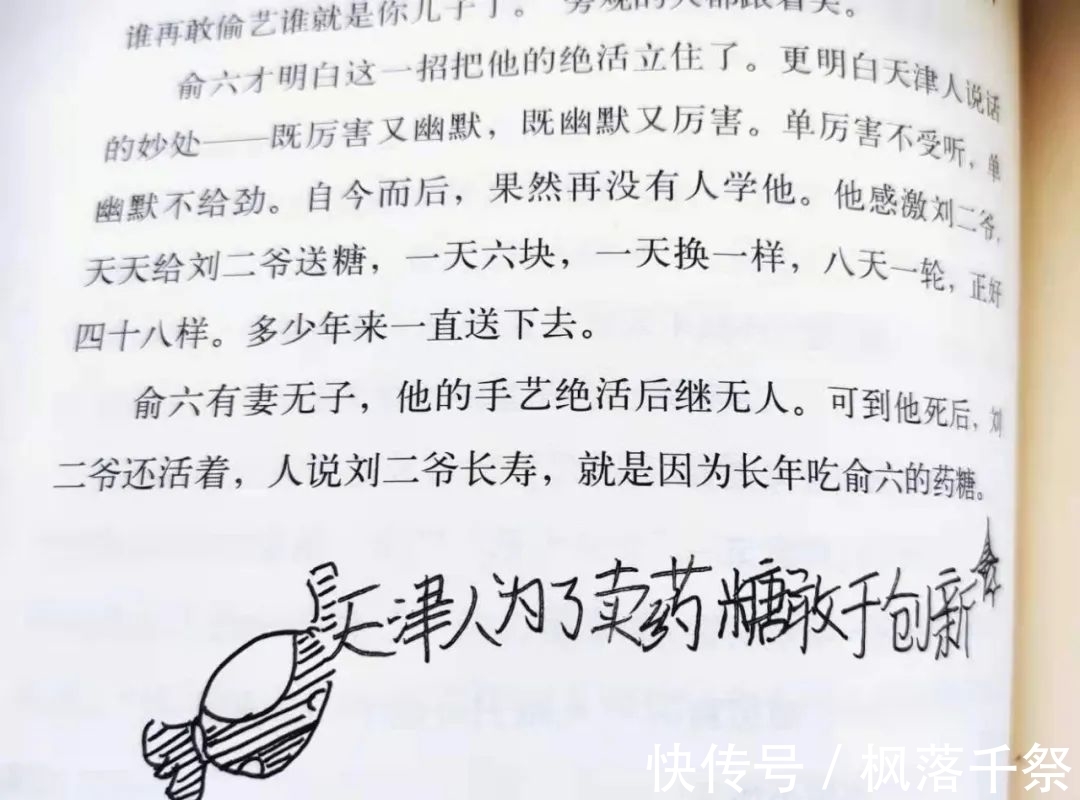 谁再敢偷艺谁就是你儿子了。”旁观的人都跟着笑。
俞六才明白这一招把他的绝活立住了。更明白天津人说话
的妙处——既厉害又幽默，既幽默又厉害。单厉害不受听，单
幽默不给劲。自今而后，果然再没有人学他。他感激刘二爷，
天天给刘二爷送糖，一天六块，一天换一样，八天一轮，正好
四十八样。多少年来一直送下去。
俞六有妻无子，他的手艺绝活后继无人。可到他死后，刘
二爷还活着，人说刘二爷长寿，就是因为长年吃俞六的药糖。
天津人为了卖药糖敢于创新
快传号 / 枫落千祭